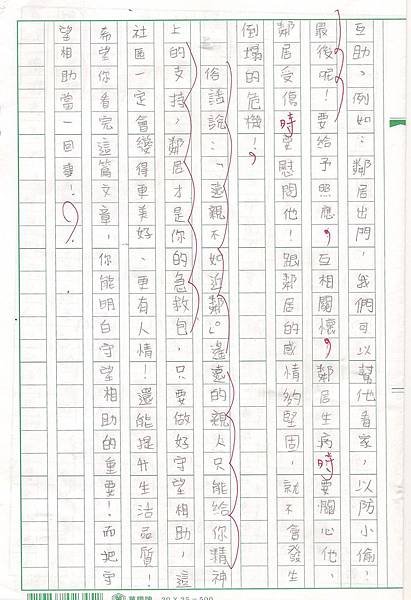 互助。例如:鄰居出門,我們可以幫他看家,以防小偷;
最後呢!要給予照應,互相關懷,鄰居生病時要關心他、
鄰居受傷時要慰問他!跟鄰居的感情夠堅固,就不會發生
倒塌的危機!
俗話說:「遠親不如近鄰。」遙遠的親人只能給你精神
上的支持,鄰居才是你的急救包,只要做好守望相助,這
社區一定會變得更美好、更有人情!還能提升生活品質!
希望你看完這篇文章,你能明白守望相助的重要!而把守
望相助當一回事!
20 X 25 = 500